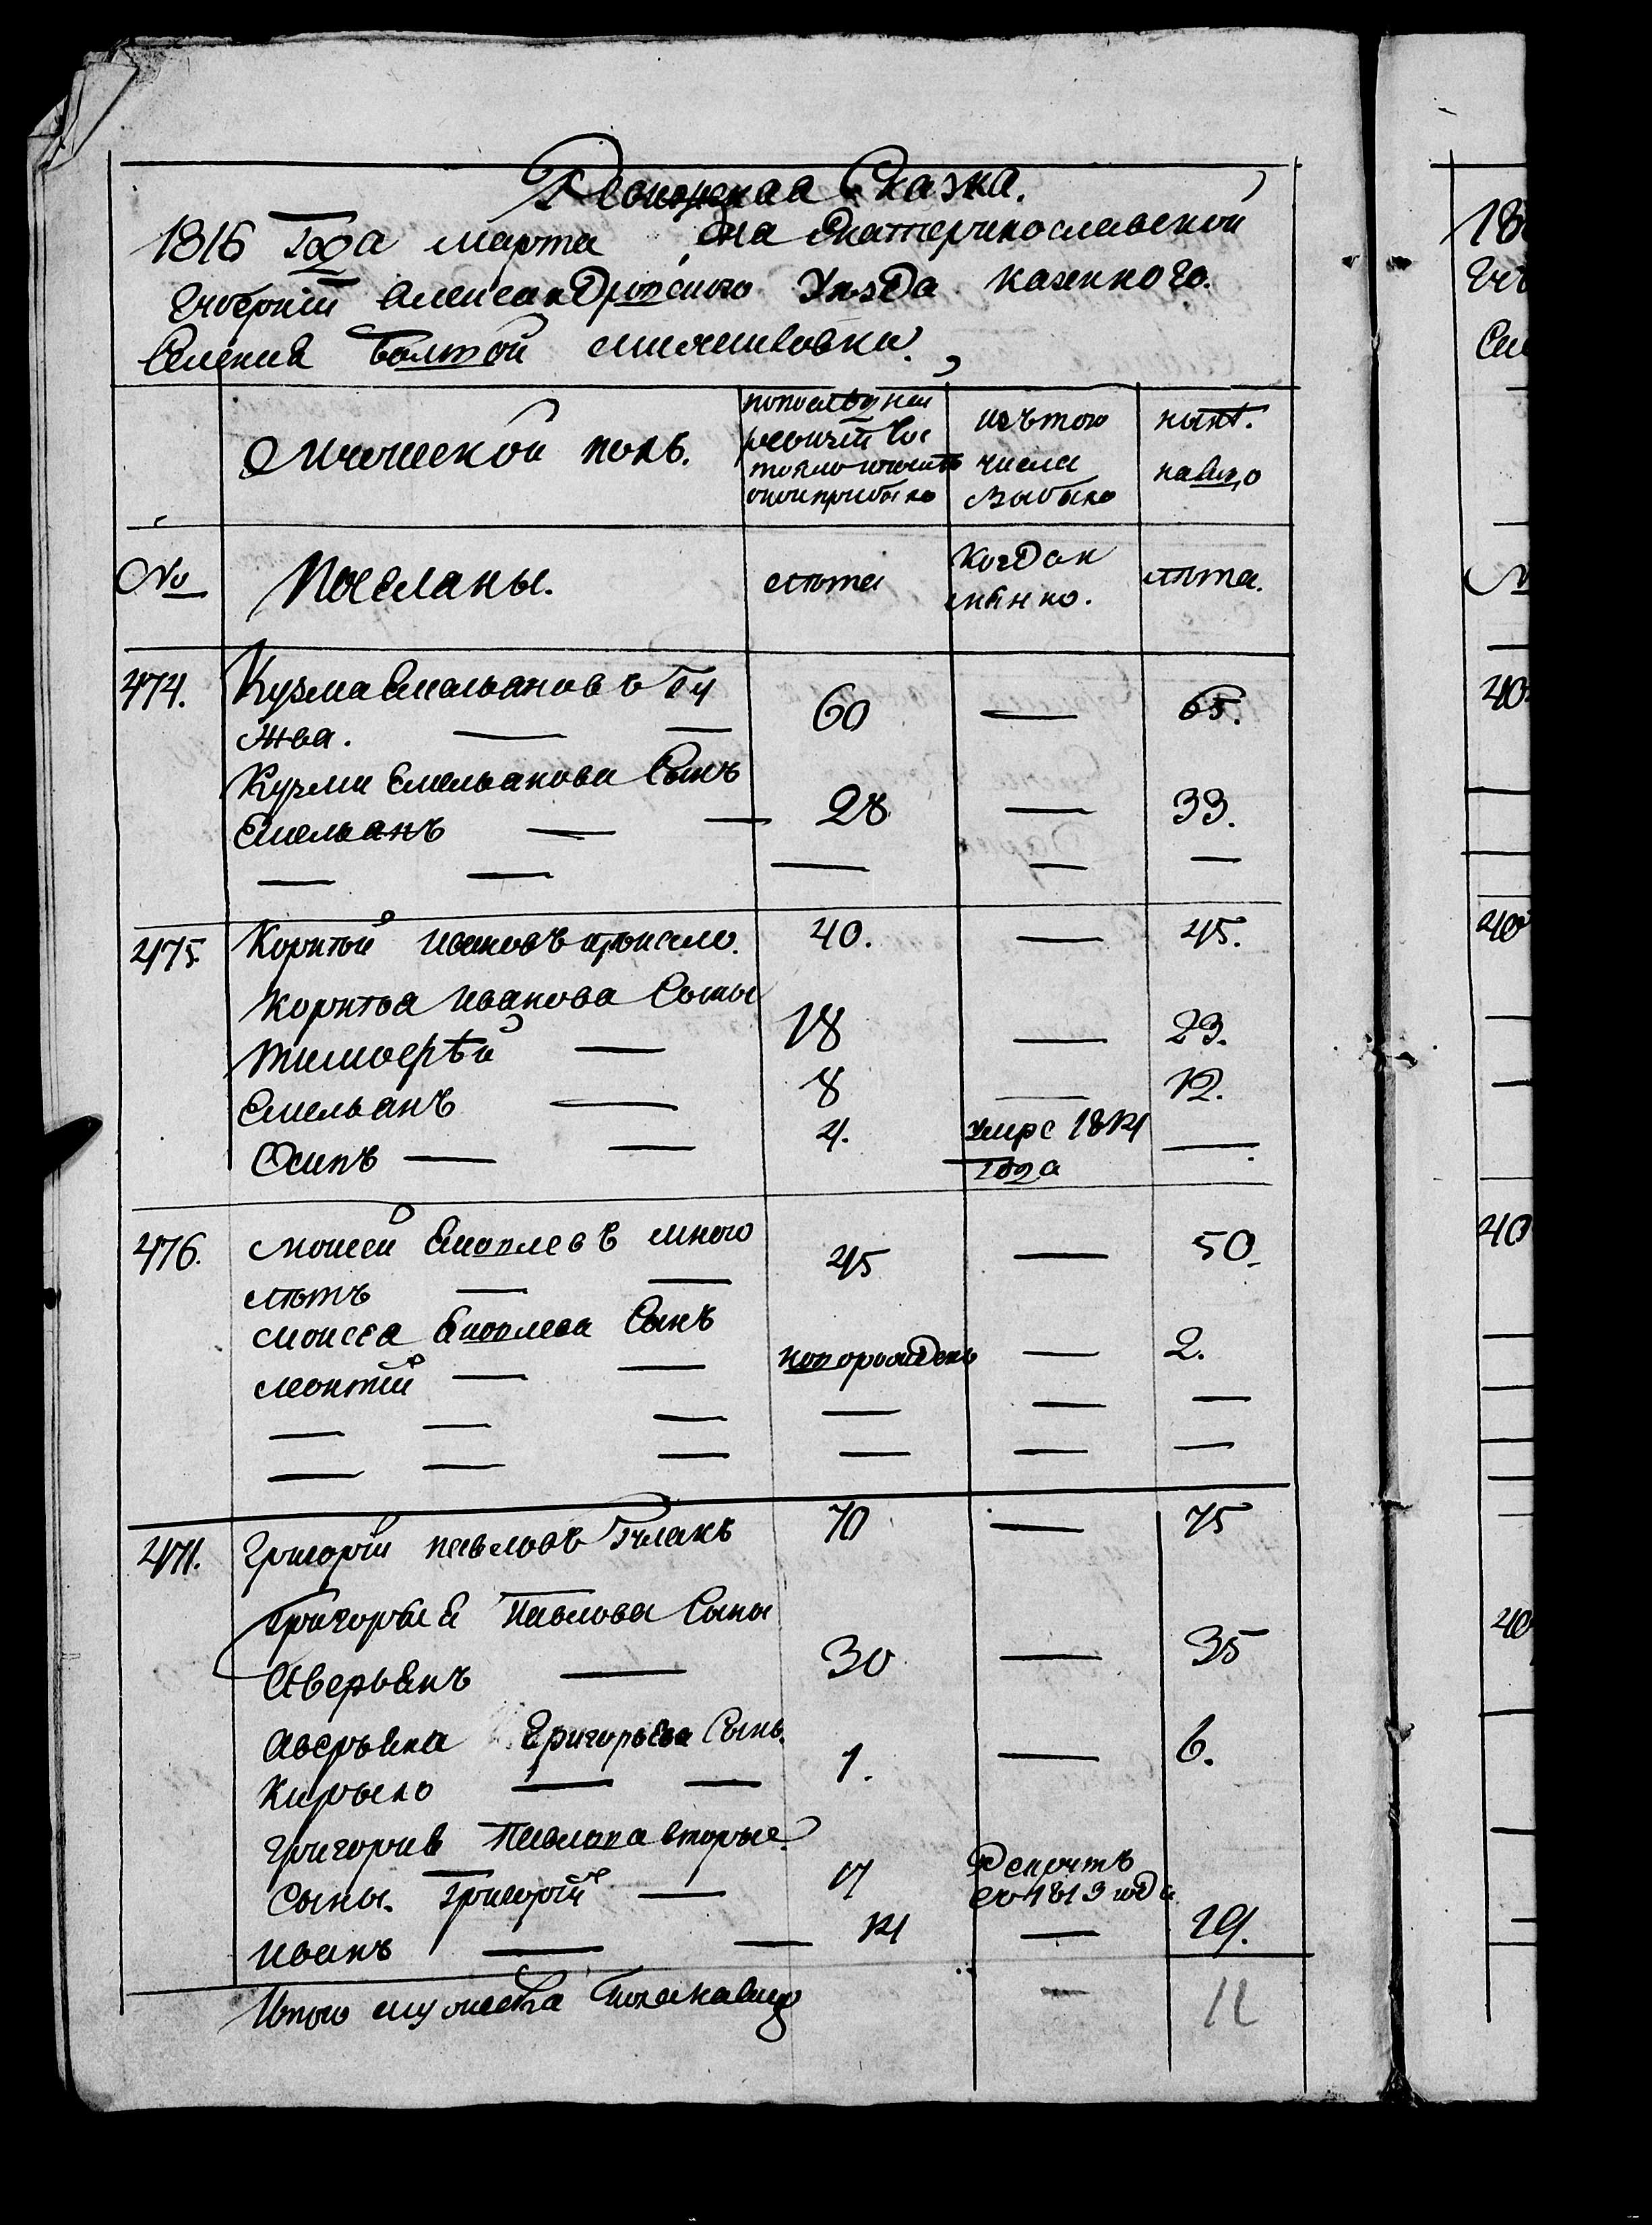 Ревизская Сказка.
1816 Года марта дня Екатеринославской
Губерніи Александровскаго Уезда казеннаго
Селения Белмой
Мужеской полъ.
по последней
ревизіи сос
тояло и после
оной прибыло
изъ того
числа
выбыло
ныне.
налицо
№
Поселяны.
лета
Когда
имянно.
лета.
474.
Кузма Емельяновъ Гу
жва. — —
60
—
65.
Кузми Емельянова Сынъ
Емельянъ — —
28
—
33.
— — — — —
475
Корнѣй Ивановъ
40.
—
45.
Корнѣя Иванова Сыны
Тимоѳѣй —
18
—
23.
Емельянъ —
8
—
12.
Осипъ — —
4.
умре 1814
года
—
476.
Моисей Яковлевъ много
летъ — —
45
—
50.
Моисея Яковлева Сынъ
Леонтій — —
новорожденъ
—
2.
— — — — — —
— — — — — —
477.
Григорій Павловъ Гулакъ
70
—
75
Григорыя Павлова Сыны
Аверьянъ —
30
—
35
Аверьяна Григорьева Сынъ
Кирыло — —
1.
—
6.
Григория Павлова вторые
Сыны. Григорій —
17
Рекрутъ
съ 1813 года
Иванъ — —
14
—
19.
Итого мужеска пола налицо
—
11
18
40
40
40
40